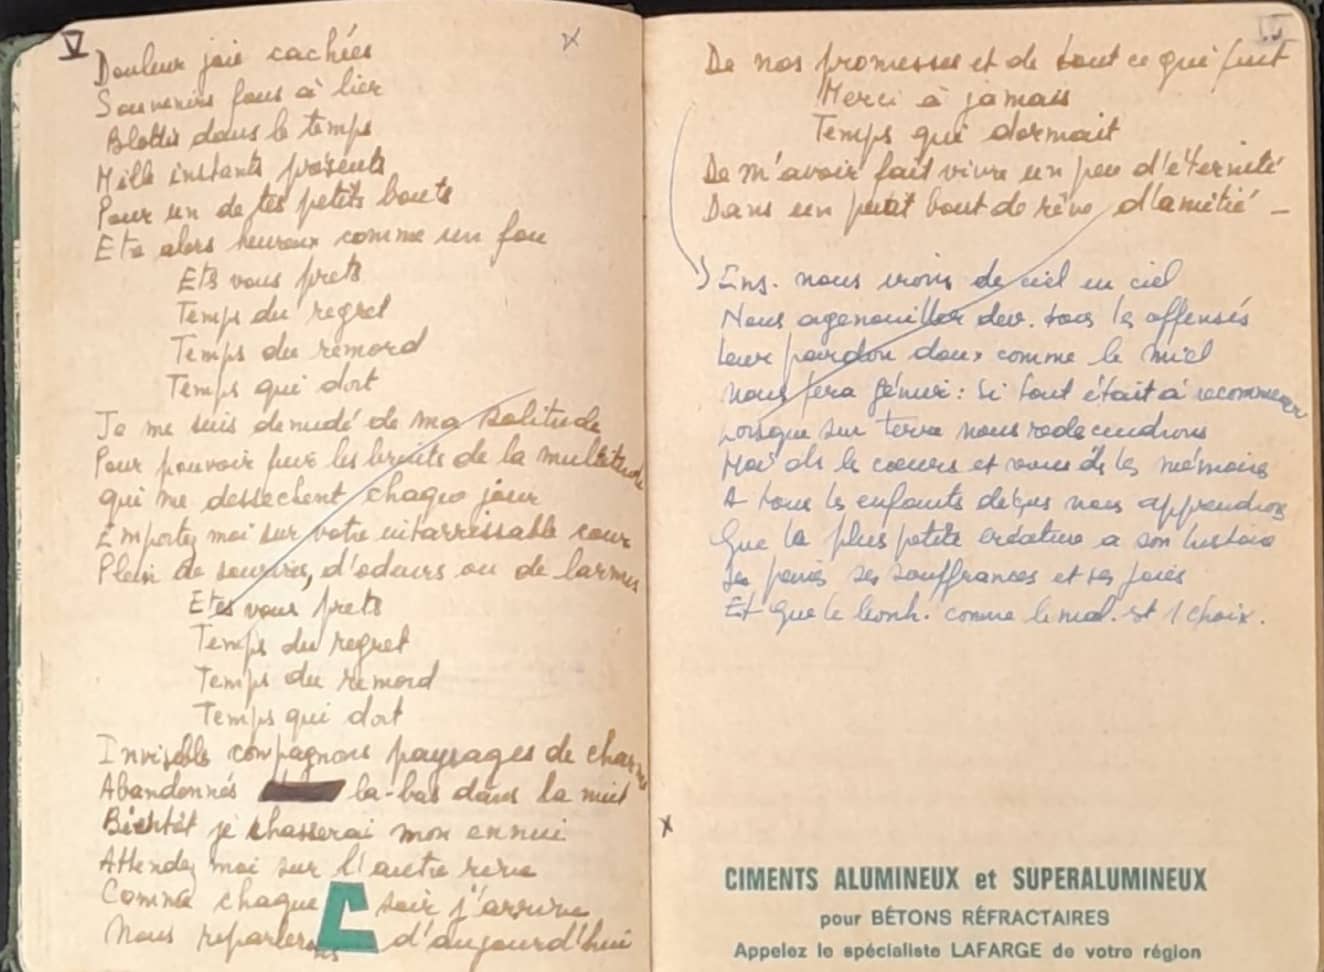 V
Douleur joie cachées
Souvenirs fous à lier
Blottis dans le temps
Mille instants présents
Pour un de tes petits bouts
Ete alors heureux comme un fou
Ets vous prets
Temps du regret
Temps du remord
Temps qui dort
Je me suis denudé de ma solitude
Pour pouvoir fuir les bruits de la multitude
qui me dessechent chaque jour
Emportez moi sur votre intarrissable cour
Plein de sourires, d'odeurs ou de larmes
Etes vous prets
Temps du regret
Temps du remord
Temps qui dort
Invisibls compagnons paysages de charmes
Abandonnés la-bas dans la nuit
Bientôt je chasserai mon ennui
Attendez moi sur l'autre rive
Comme chaque soir j'arrive
Nous reparlerons d'aujourd'hui
De nos promesses et de tout ce qui fut
Merci à jamais
Temps qui dormait
De m'avoir fait vivre un peu d'éternité
Dans un petit bout de rêve d'amitié –
Ens. nous irons de ciel en ciel
Nous agenouiller dev. tous ls offensés
Leur pardon doux comme le miel
Nous fera gémir : Si tout était à recommencer
Lorsque sur terre nous redescendrons
ds le coeurs et ds ls mémoires
A tous ls enfants déçus nous apprendrons
Que la plus petite créature a son histoire
Ses peines ses souffrances et ses joies
Et que le bonh. comme le mal. st 1 choix.
CIMENTS ALUMINEUX et SUPERALUMINEUX
pour BÉTONS RÉFRACTAIRES
Appelez le spécialiste LAFARGE de votre région